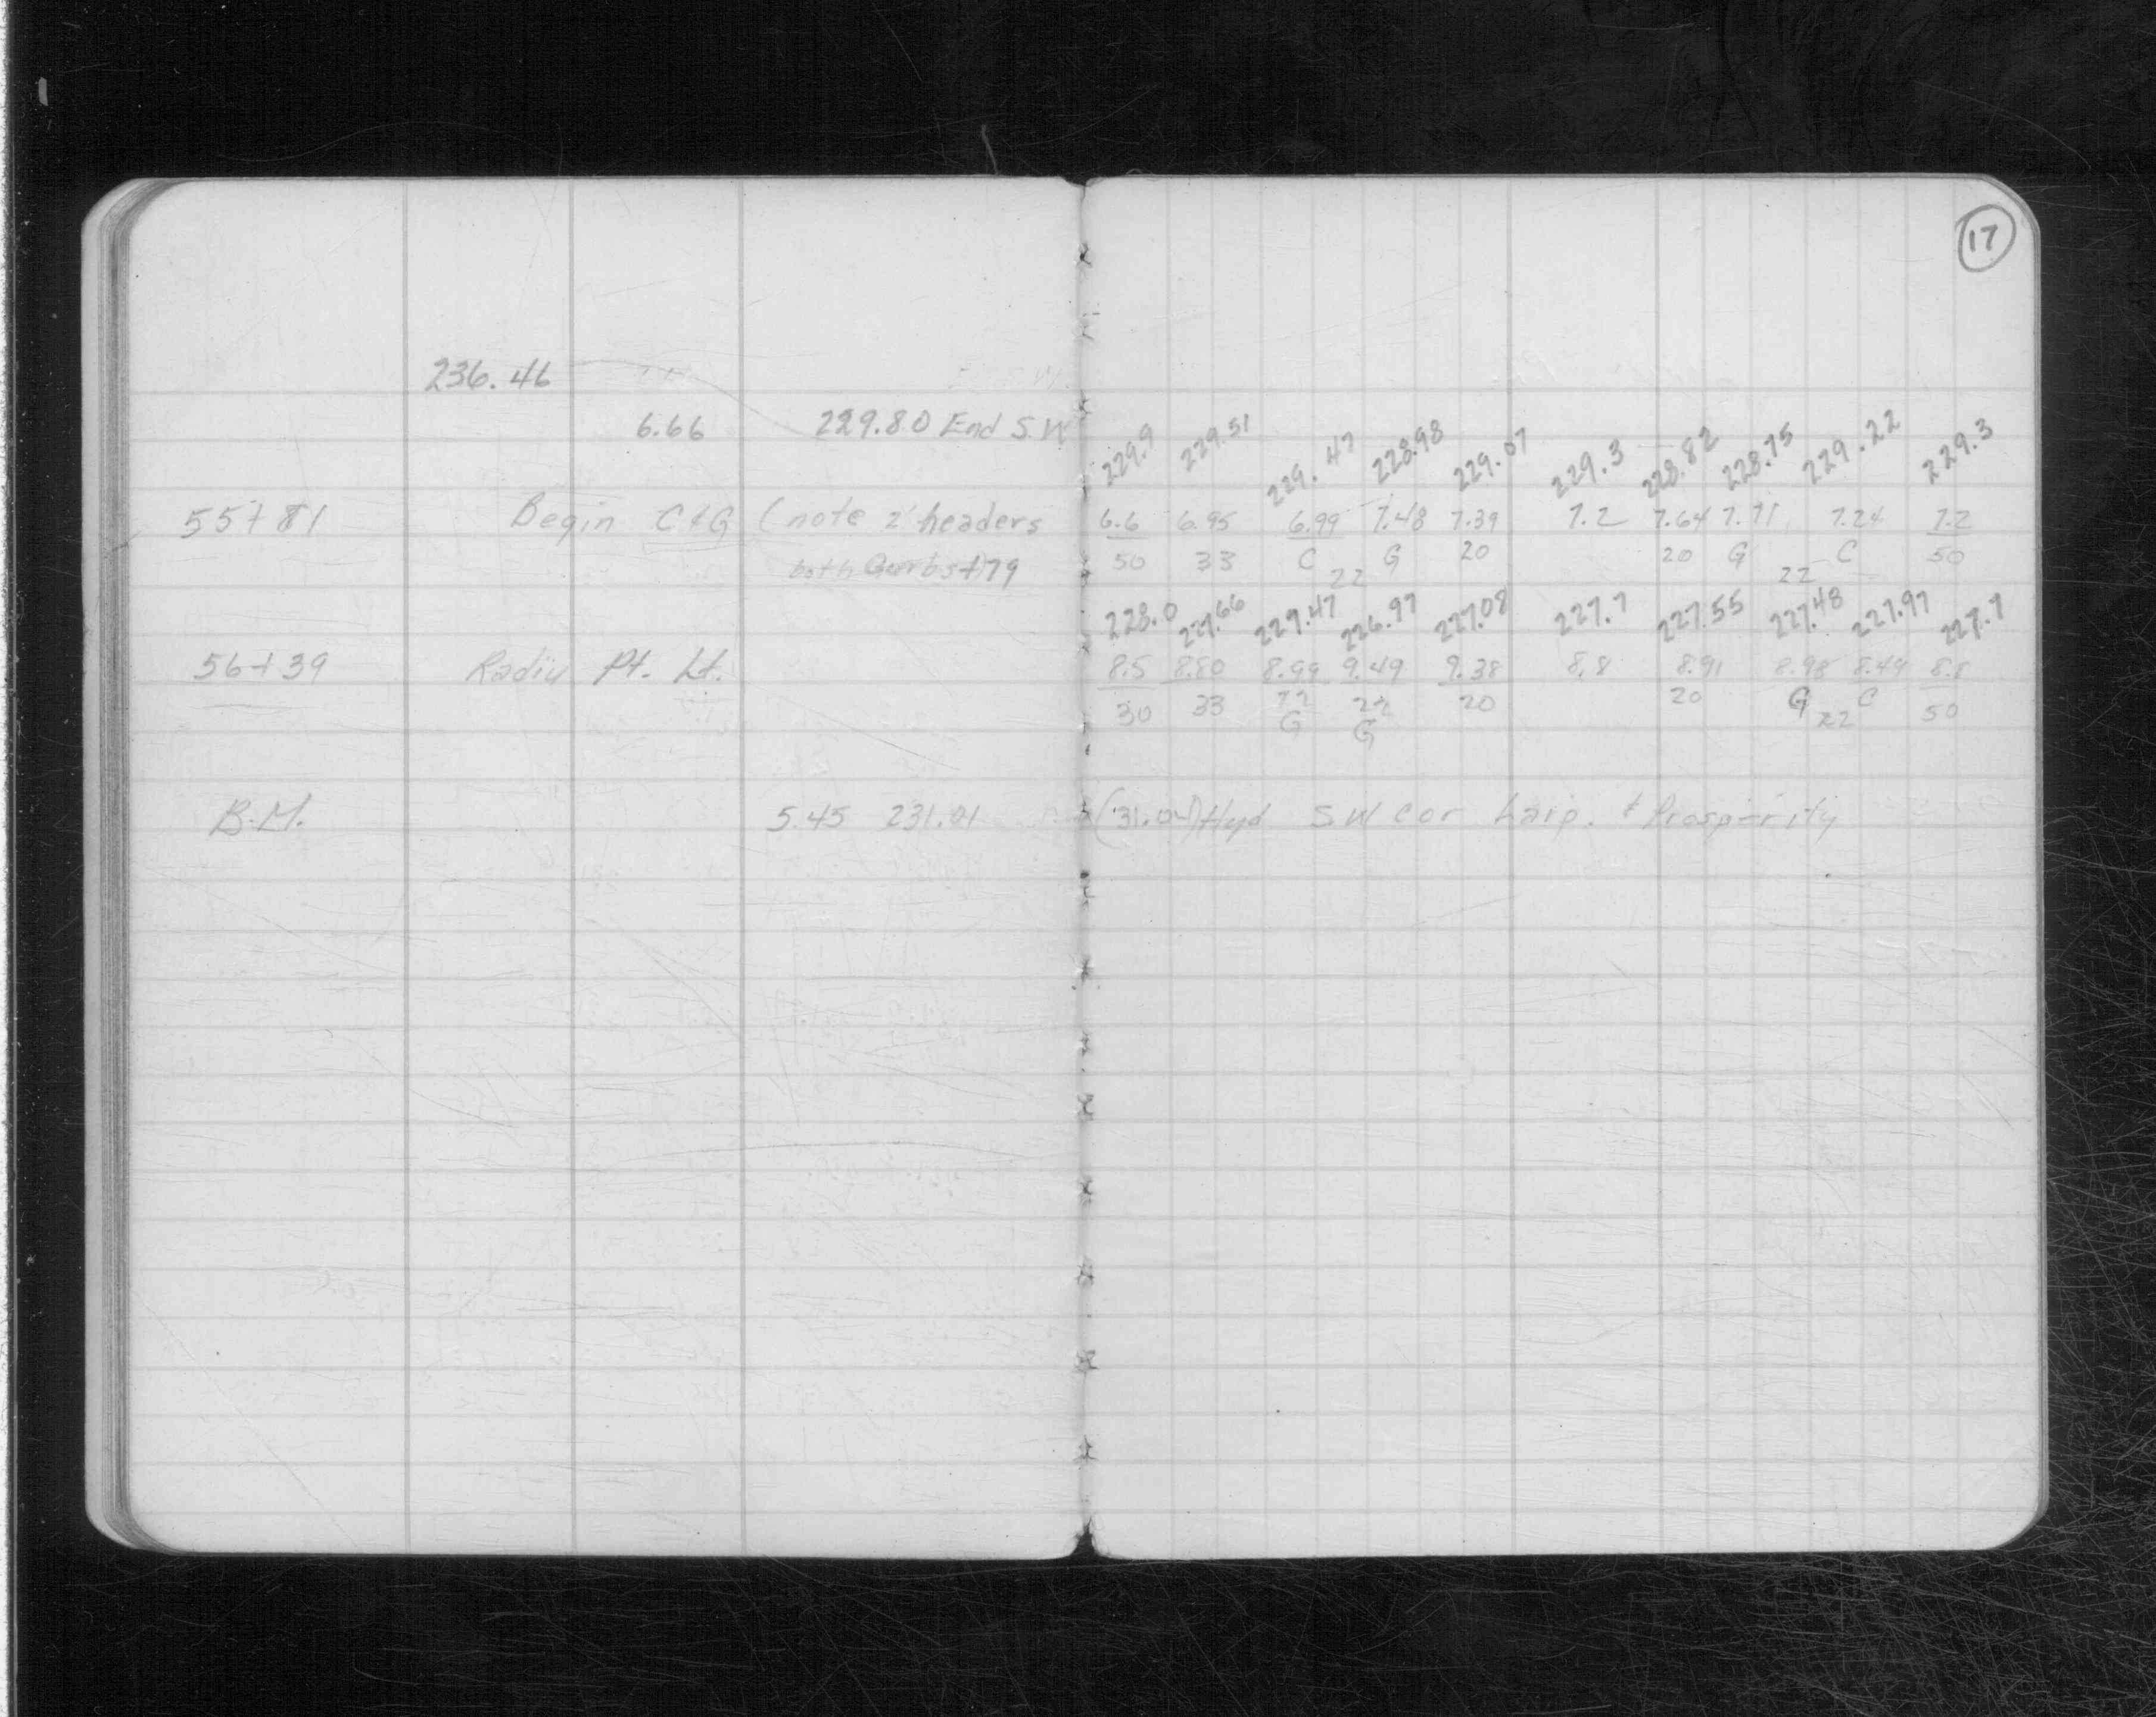 17
236.46
6.66 229.80 End S.W
229.9 229.51 229.47 228.98 229.07 229.3 228.82 228.75 229.22 229.3
55+81 Begin C&G (note 2' headers 6.6 6.95 6.99 7.48 7.39 7.2 7.64 7.71 7.24 7.2
both Curbs +79 50 33 C 22 G 20 20 G 22 C 50
228.0 227.66 227.47 226.97 227.08 227.7 227.55 227.48 227.97 227.7
56+39 Radiu Pt. Lt. 8.5 8.80 8.99 9.49 9.38 8.8 8.91 8.98 8.49 8.8
30 33 22 22 20 20 G 22 C 50
G G
B.M. 5.45 231.01 (31.04) Hyd S.W cor Larp. & Prosperity